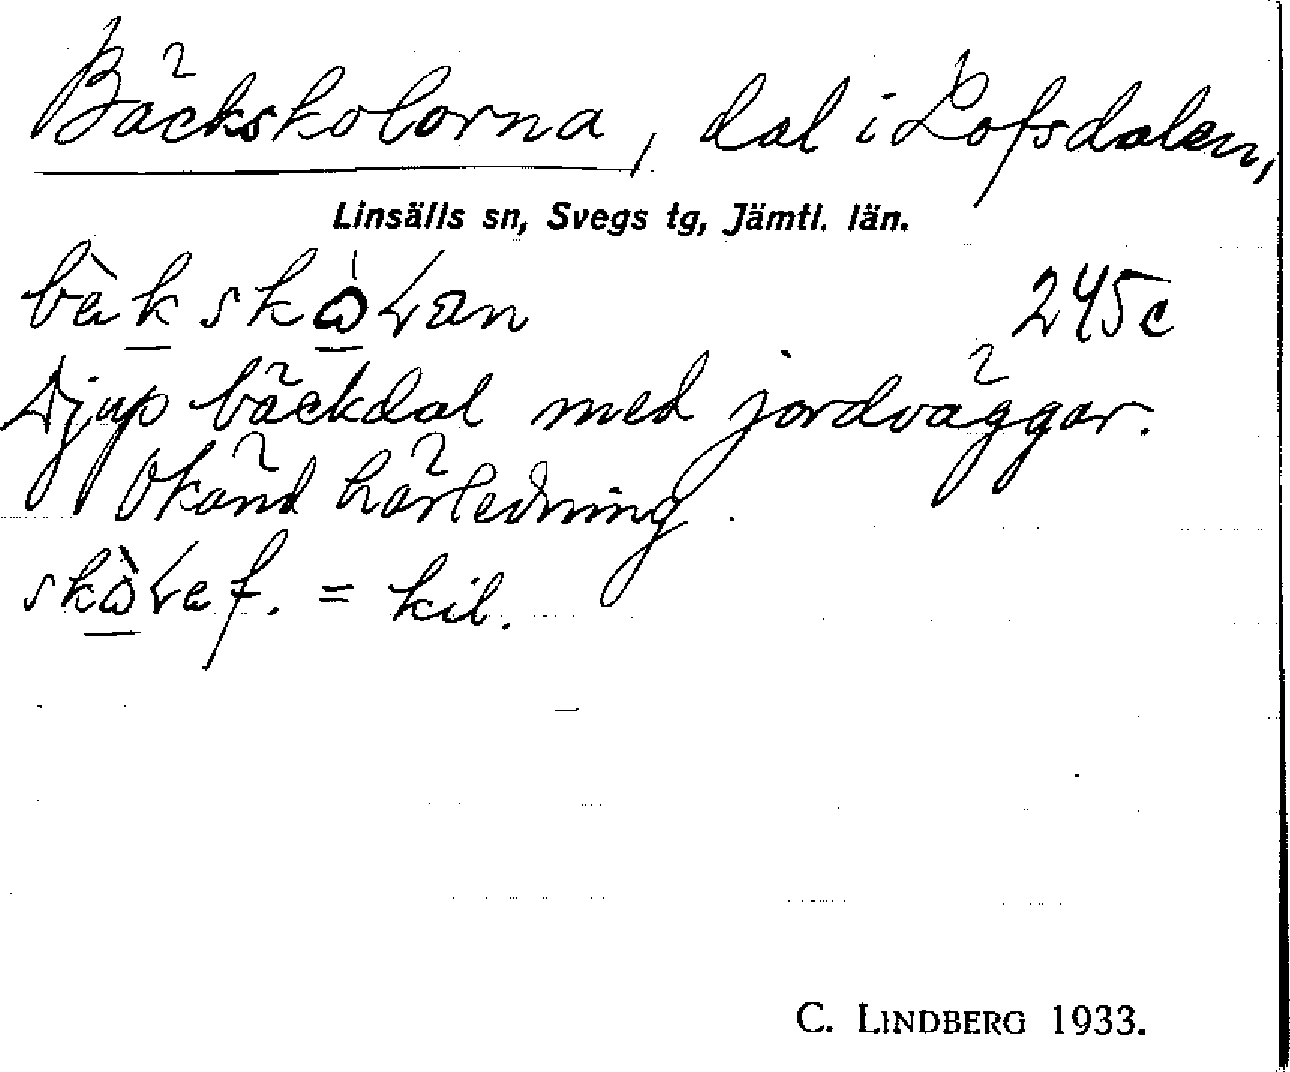 Bäckskolorna, dal i Lofsdalen,
Linsälls sn, Svegs tg, Jämtl. län.
bὰkskὼLan 245c
Djup bäckdal med jordväggar.
Okänd härledning.
skὼLa f. = kil.
C. LINDBERG 1933.